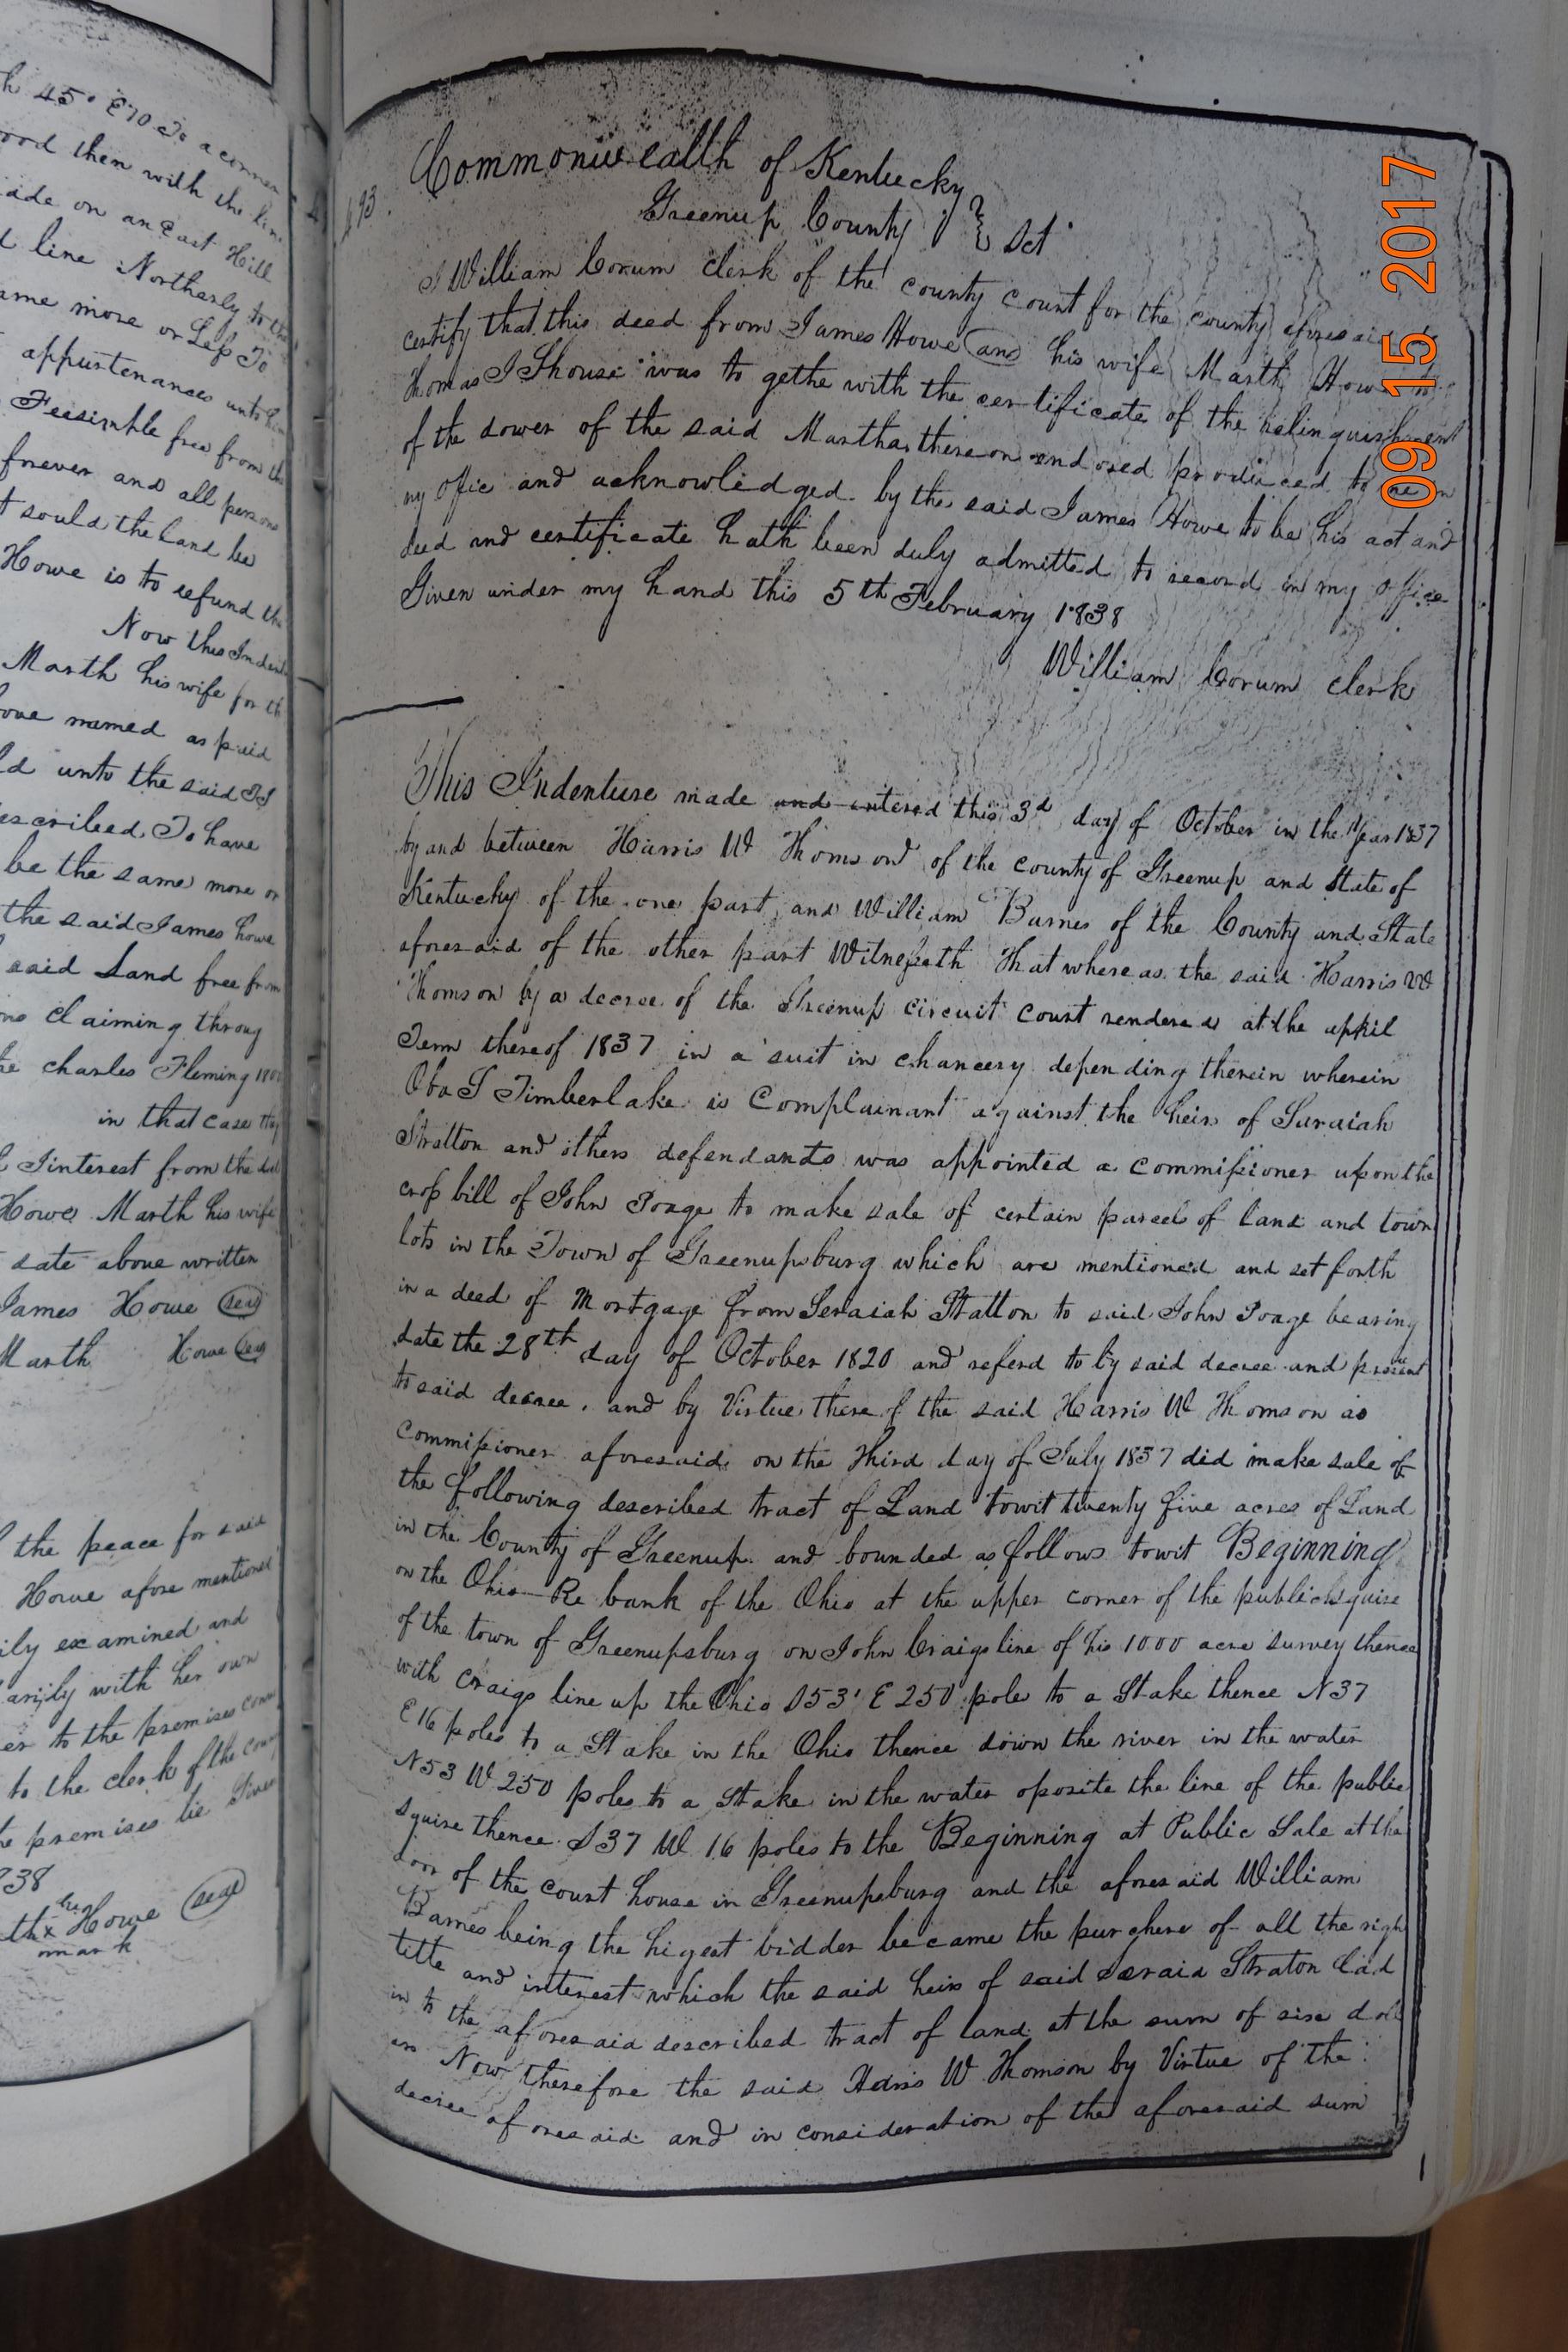 h 45° E 70 To a corner
ood then with the line
ade on an East Hill
d line Northerly to the
ame more or Less To
appurtenances unto him
Feesimble free from the
forever and all persons
t sould the land be
Howe is to refund the
Now this Indent
Marth his wife for th
ove named as paid
ld unto the said TJ
escribed To have
be the same more or
the said James howe
said Land free from
ns claiming throug
he charles Fleming
in that case they
& Iinterest from the dat
Howe Marth his wife
date above written
James Howe (seal)
Marth Howe (seal)
f the peace for said
Howe afore mentioned
ily examined and
arily with her own
er to the premises
to the clerk of the coun
he premises be Given
38
her
th x Howe (seal)
mark
493.
Commonwealth of Kentucky
Greenup County } Sct
I William Corum clerk of the county court for the county aforesaid
certify that this deed from James Howe and his wife Marth Howe to
Thomas I Shouse was to gethe with the certificate of the relinquishment
of the dower of the said Martha thereon endorsed produced to me in
my offic and acknowlidged by the said James Howe to be his act and
deed and certificate hath been duly admitted to record in my office
Given under my hand this 5th February 1838
William Corum clerk
This Indenture made and entered this 3d day of October in the Year 1837
by and between Harris W Thomson of the county of Greenup and State of
Kentucky of the one part and William Barnes of the County and State
aforesaid of the other part Witnesseth That where as the said Harris W
Thomson by a decree of the Greenup circuit court rendered at the april
Term thereof 1837 in a suit in chancery depending therein wherein
Oba T Timberlake is Complainant against the heirs of Saraiah
Stratton and others defendants was appointed a commissioner upon the
cross bill of John Poage to make sale of certain parcels of land and town
lots in the Town of Greenupsburg which are mentioned and set forth
in a deed of Mortgage from Seraiah Stratton to said John Poage bearing
date the 28th day of October 1820 and referd to by said decree and
to said decree. and by Virtue there of the said Harris W Thomson as
commissioner aforesaid on the Third day of July 1837 did make sale of
the following described tract of Land towit twenty five acres of Land
in the County of Greenup and bounded as follows towit Beginning
on the Ohio Re bank of the Ohio at the upper corner of the public squire
of the town of Greenupsburg on John Craigs line of his 1000 acre survey thence
with Craigs line up the Ohio S53 E 250 pole to a Stake thence N37
E 16 poles to a Stake in the Ohio thence down the river in the water
N53 W 250 poles to a Stake in the water oposite the line of the public
squire thence S37 W 16 poles to the Beginning at Public Sale at the
door of the court house in Greenupsburg and the aforesaid William
Barnes being the higest bidder became the purchere of all the righ
title and interest which the said heirs of said Seraia Straton had
in to the aforesaid described tract of land at the sum of sixe doll
ers Now therefore the said Harris W Thomson by Virtue of the
decree aforesaid and in consideration of the aforesaid sum
09 15 2017